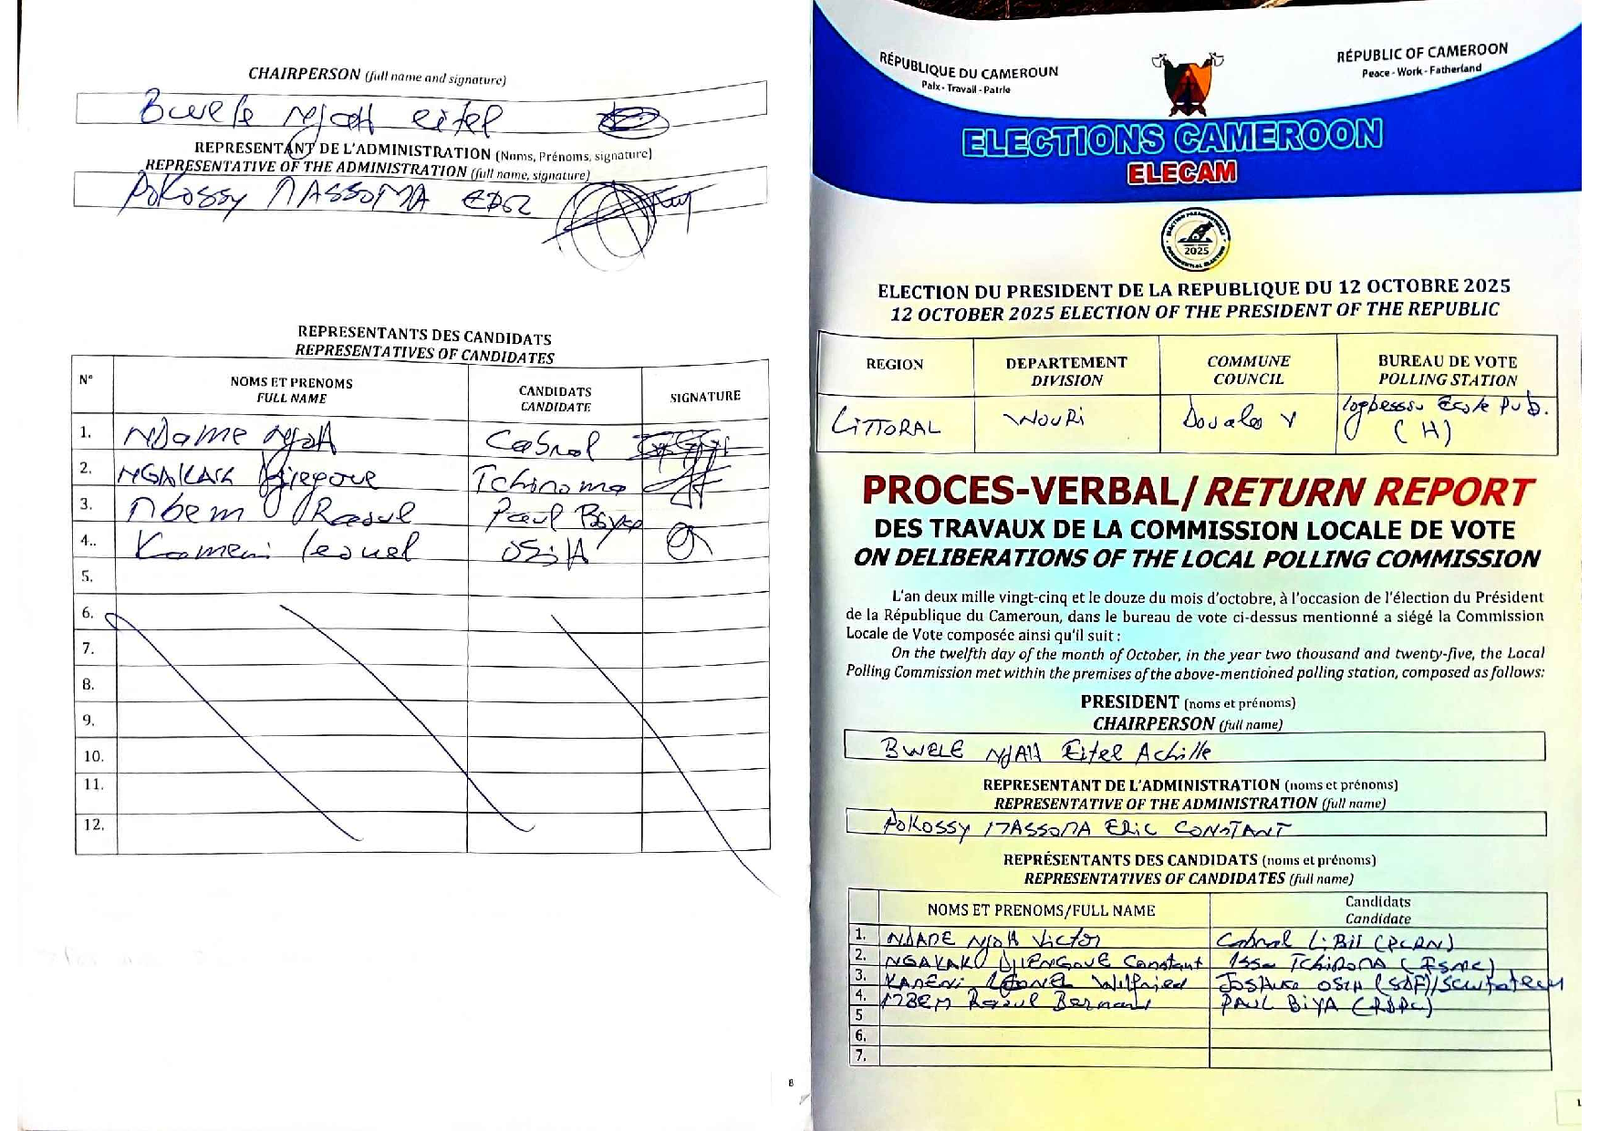 CHAIRPERSON (full name and signature)
Bwele Njoh eitel
REPRESENTANT DE L'ADMINISTRATION (Noms, Prénoms, signature)
REPRESENTATIVE OF THE ADMINISTRATION (full name, signature)
POKOSSY MASSOMA
REPRESENTANTS DES CANDIDATS
REPRESENTATIVES OF CANDIDATES
N° NOMS ET PRENOMS FULL NAME CANDIDATS CANDIDATE SIGNATURE
1. Ndame Njoh Cabral
2. Tchiroma
3. Mbem Raoul Paul Biya
4.. Kameni Leonel OSIH
5.
6.
7.
8.
9.
10.
11.
12.
8
RÉPUBLIQUE DU CAMEROUN
Paix - Travail - Patrie
RÉPUBLIC OF CAMEROON
Peace - Work - Fatherland
ELECTIONS CAMEROON
ELECAM
2025
ELECTION DU PRESIDENT DE LA REPUBLIQUE DU 12 OCTOBRE 2025
12 OCTOBER 2025 ELECTION OF THE PRESIDENT OF THE REPUBLIC
REGION DEPARTEMENT DIVISION COMMUNE COUNCIL BUREAU DE VOTE POLLING STATION
LITTORAL WOURI Douala V Logbessou Ecole Pub. (H)
PROCES-VERBAL/RETURN REPORT
DES TRAVAUX DE LA COMMISSION LOCALE DE VOTE
ON DELIBERATIONS OF THE LOCAL POLLING COMMISSION
L'an deux mille vingt-cinq et le douze du mois d'octobre, à l'occasion de l'élection du Président
de la République du Cameroun, dans le bureau de vote ci-dessus mentionné a siégé la Commission
Locale de Vote composée ainsi qu'il suit :
On the twelfth day of the month of October, in the year two thousand and twenty-five, the Local
Polling Commission met within the premises of the above-mentioned polling station, composed as follows:
PRESIDENT (noms et prénoms)
CHAIRPERSON (full name)
BWELE NJOH Eitel Achille
REPRESENTANT DE L'ADMINISTRATION (noms et prénoms)
REPRESENTATIVE OF THE ADMINISTRATION (full name)
POKOSSY MASSOMA ERIC CONSTANT
REPRÉSENTANTS DES CANDIDATS (noms et prénoms)
REPRESENTATIVES OF CANDIDATES (full name)
NOMS ET PRENOMS/FULL NAME Candidats Candidate
1. NDAME NJOH Victor Cabral LiBII (PCRN)
2. NGAKAKO DJIENGOUE Constant Issa TCHIROMA (FSNC)
3. KAMENI LEONEL Wilfried JOSHUA OSIH (SDF)/Scrutateur
4. MBEM Raoul Bernard PAUL BIYA (RDPC)
5
6.
7.
1